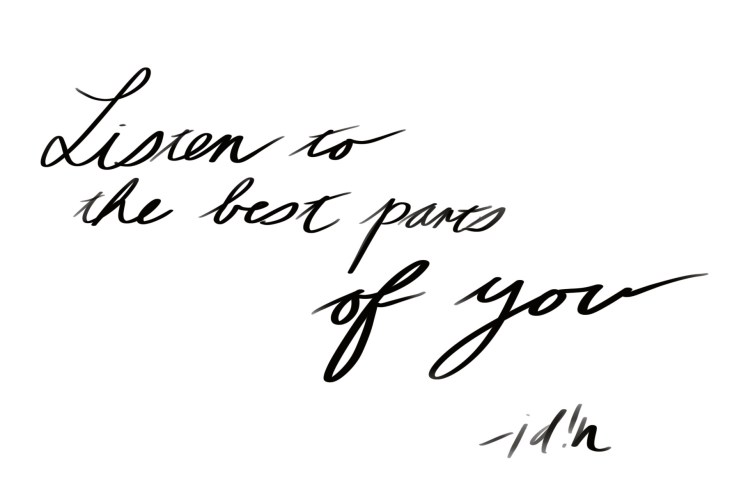 Listen to
the best parts
of you
-jd!n